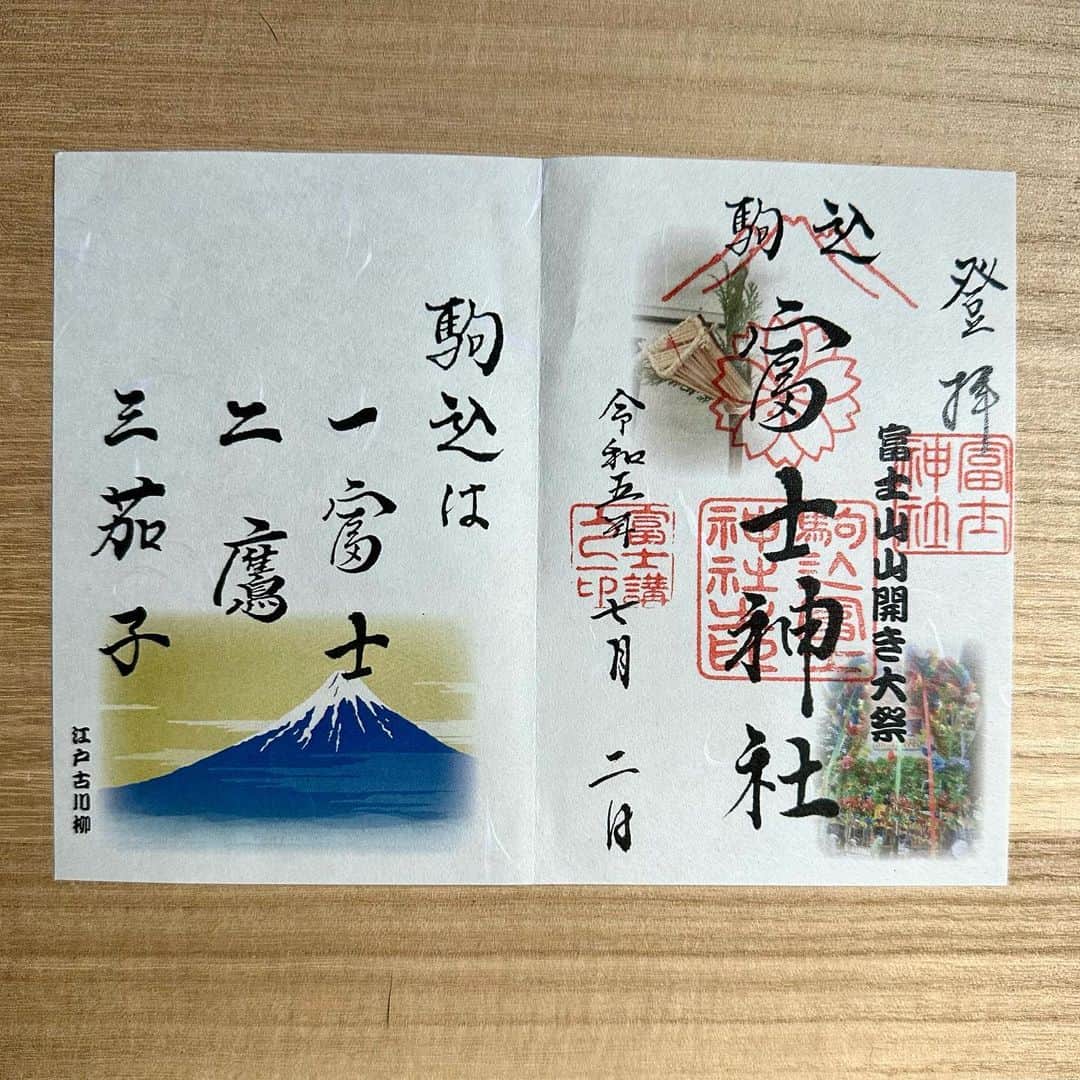 登拝
富士神社
富士山山開き大祭
駒込
富士神社
駒込富士神社之印
令和五年七月二日
富士講
駒込は
一富士
二鷹
三茄子
江戸古川柳